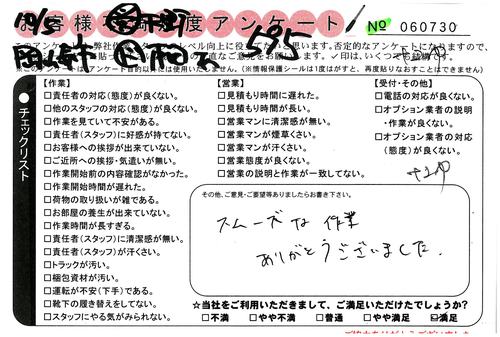 お客様満足度アンケート
№ 060730
10/5
595
チェックリスト
【作業】
□責任者の対応(態度)が良くない。
□他のスタッフの対応(態度)が良くない。
□作業を見ていて不安がある。
□責任者(スタッフ)に好感が持てない。
□お客様への挨拶が出来ていない。
□ご近所への挨拶・気遣いが無い。
□作業開始前の内容確認がなかった。
□作業開始時間が遅れた。
□荷物の取り扱いが雑である。
□お部屋の養生が出来ていない。
□作業時間が長すぎる。
□責任者(スタッフ)に清潔感が無い。
□責任者(スタッフ)が汗くさい。
□トラックが汚い。
□梱包資材が汚い。
□運転が不安(下手)である。
□靴下の履き替えをしてない。
□スタッフにやる気がみられない。
【営業】
□見積もり時間に遅れた。
□見積もり時間が長い。
□営業マンに清潔感が無い。
□営業マンが煙草くさい。
□営業マンが汗くさい。
□営業態度が良くない。
□営業の説明と作業が一致してない。
【受付・その他】
□電話の対応が良くない。
□オプション業者の説明・作業が良くない。
□オプション業者の対応(態度)が良くない。
その他、ご意見・ご要望等ありましたらお書き下さい。
スムーズな 作業
ありがとうございました。
☆当社をご利用いただきまして、ご満足いただけたでしょうか?
□不満 □やや不満 □普通 □やや満足 ☑満足